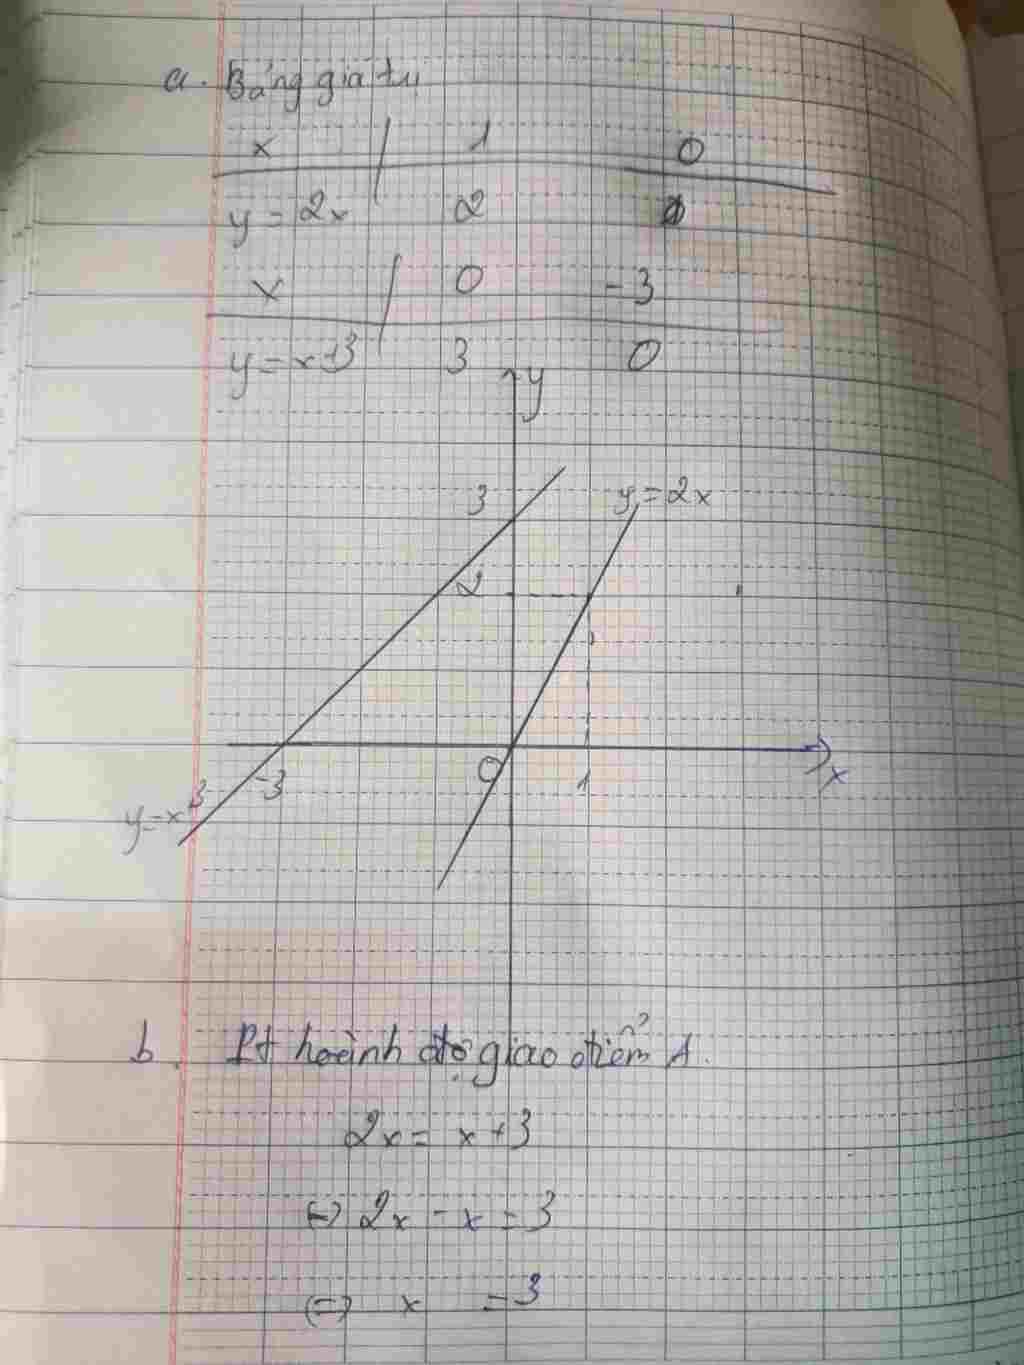 a. Bảng giá trị
x | 1 0
y = 2x 2 0
x | 0 -3
y = x+3 3 0
y
3 y = 2x
2
-3 O 1 x
y = x+3
b. Pt hoành độ giao điểm A.
2x = x + 3
(=) 2x - x = 3
(=) x = 3